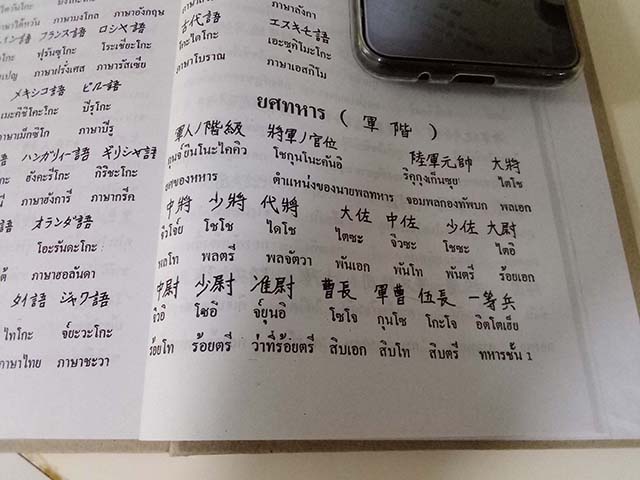 ภาษาไต้หวัน ภาษามงโกล ภาษาอังกฤษ
フランス語 ロシヤ語
ฟุรันซุโกะ โระเชียะโกะ
ภาษาฝรั่งเศส ภาษารัสเซีย
メキシコ語 ピル一語
เมะคิซิโคะโกะ บีรูโกะ
ภาษาเม็กซิโก ภาษาบีรู
ハンガリィー語 ギリシャ語
ฮังคะรีโกะ กิริซะโกะ
ภาษาฮังการี ภาษากรีค
オランダ語
โอะรันดะโกะ
ภาษาฮอลันดา
タイ語 ジャワ語
ไทโกะ จ์ยะวะโกะ
ภาษาไทย ภาษาชะวา
ภาษาลังกา
古代語 エスキモ語
โกะไดโกะ เอะซุกิโมะโกะ
ภาษาโบราณ ภาษาเอสกิโม
ยศทหาร ( 軍階 )
軍人ノ階級 将軍ノ官位 陸軍元帥 大将
กุนจ์ยินโนะไคคิว โชกุนโนะคันอิ ริคุกุงเก็นซุย ไตโช
ยศของทหาร ตำแหน่งของนายพลทหาร จอมพลกองทัพบก พลเอก
中将 少将 代将 大佐 中佐 少佐 大尉
จิวโจ์ย โชโช ไดโช ไตซะ จิวซะ โชซะ ไตอิ
พลโท พลตรี พลจัตวา พันเอก พันโท พันตรี ร้อยเอก
中尉 少尉 准尉 曹長 軍曹 伍長 一等兵
จิวอิ โชอิ จ์ยุนอิ โซโจ กุนโซ โกะโจ อิตโตเฮ็ย
ร้อยโท ร้อยตรี ว่าที่ร้อยตรี สิบเอก สิบโท สิบตรี ทหารชั้น 1